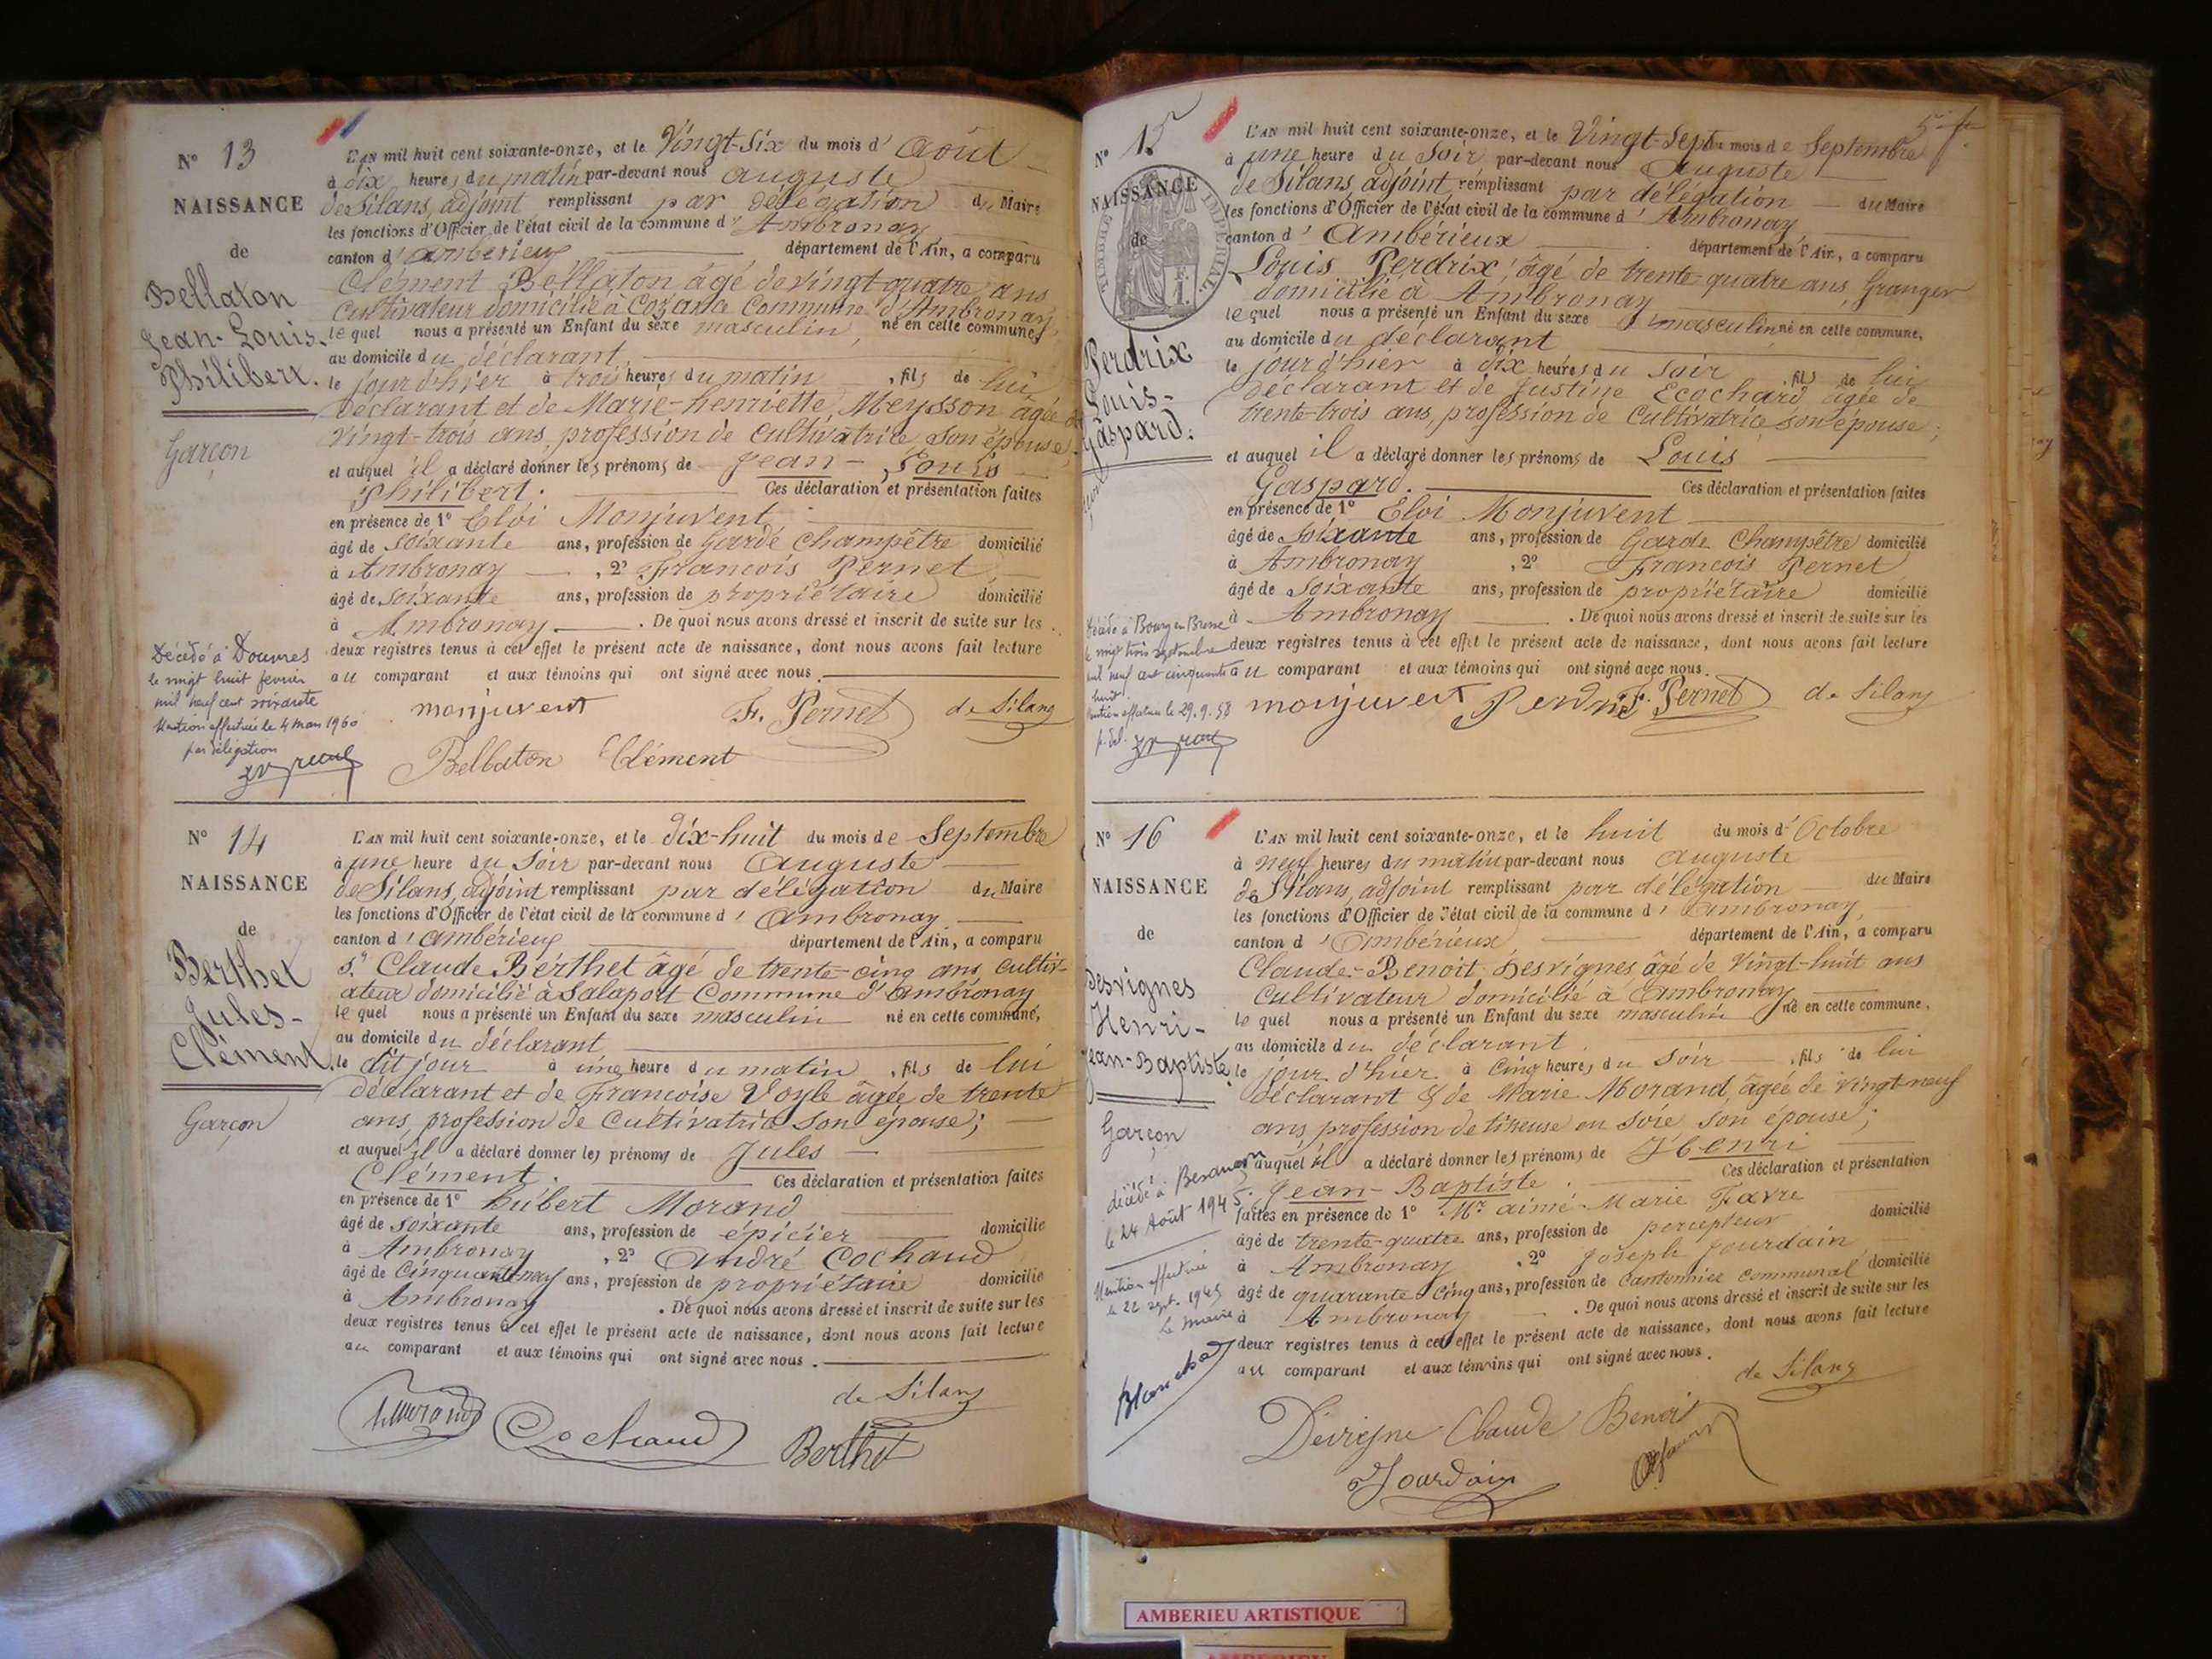 N° 13
NAISSANCE
de
Bellaton
Jean-Louis-
Philibert.
Garçon
L'AN mil huit cent soixante-onze, et le Vingt-Six du mois d' Août
à dix heures du matin par-devant nous Auguste
de Silans, adjoint remplissant par délégation du Maire
les fonctions d'Officier de l'état civil de la commune d' Ambronay
canton d' Ambérieux département de l'Ain, a comparu
Clément Bellaton âgé de vingt-quatre ans
Cultivateur domicilié à Cozance Commune d'Ambronay,
lequel nous a présenté un Enfant du sexe masculin, né en cette commune,
au domicile du déclarant,
le jour d'hier à trois heures du matin, fils de lui
déclarant et de Marie-henriette Meysson âgée de
vingt-trois ans, profession de Cultivatrice son épouse;
et auquel il a déclaré donner les prénoms de Jean - Louis
Philibert. Ces déclaration et présentation faites
en présence de 1° Eloi Monjuvent
âgé de soixante ans, profession de Garde Champêtre domicilié
à Ambronay , 2° François Pernet
âgé de soixante ans, profession de propriétaire domicilié
à Ambronay. De quoi nous avons dressé et inscrit de suite sur les
deux registres tenus à cet effet le présent acte de naissance, dont nous avons fait lecture
au comparant et aux témoins qui ont signé avec nous.
Décédé à Douvres
le vingt huit fevrier
mil neuf cent soixante
Mention effectuée le 4 Mars 1960
par délégation
monjuvent F. Pernet de Silans
Bellaton Clément
N° 14
NAISSANCE
de
Berthet
Jules-
Clément.
Garçon
L'AN mil huit cent soixante-onze, et le dix-huit du mois de Septembre
à une heure du Soir par-devant nous Auguste
de Silans, adjoint remplissant par délégation du Maire
les fonctions d'Officier de l'état civil de la commune d' Ambronay
canton d' Ambérieux département de l'Ain, a comparu
Sr. Claude Berthet âgé de trente-cinq ans, cultiv-
ateur domicilié à Salaport Commune d'Ambronay
lequel nous a présenté un Enfant du sexe masculin né en cette commune,
au domicile du déclarant
le dit jour à une heure du matin, fils de lui
déclarant et de Francoise Voyle âgée de trente
ans, profession de Cultivatrice son épouse;
et auquel il a déclaré donner les prénoms de Jules -
Clément. Ces déclaration et présentation faites
en présence de 1° hubert Morand
âgé de soixante ans, profession de épicier domicilié
à Ambronay , 2° André Cochaud
âgé de Cinquante-neuf ans, profession de propriétaire domicilié
à Ambronay. De quoi nous avons dressé et inscrit de suite sur les
deux registres tenus à cet effet le présent acte de naissance, dont nous avons fait lecture
au comparant et aux témoins qui ont signé avec nous.
de Silans
h Morand Cochaud Berthet
N° 15
NAISSANCE
de
TIMBRE IMPÉRIAL
Perdrix
Louis-
Gaspard.
L'AN mil huit cent soixante-onze, et le Vingt-Sept du mois de Septembre
à une heure du Soir par-devant nous Auguste
de Silans, adjoint remplissant par délégation du Maire
les fonctions d'Officier de l'état civil de la commune d' Ambronay
canton d' Ambérieux département de l'Ain, a comparu
Louis Perdrix, âgé de trente-quatre ans, Granger
domicilié à Ambronay
lequel nous a présenté un Enfant du sexe masculin né en cette commune,
au domicile du déclarant
le jour d'hier à dix heures du soir fils de lui
déclarant et de Justine Ecochard âgée de
trente-trois ans, profession de Cultivatrice son épouse;
et auquel il a déclaré donner les prénoms de Louis
Gaspard. Ces déclaration et présentation faites
en présence de 1° Eloi Monjuvent
âgé de soixante ans, profession de Garde Champêtre domicilié
à Ambronay , 2° François Pernet
âgé de soixante ans, profession de propriétaire domicilié
à Ambronay . De quoi nous avons dressé et inscrit de suite sur les
deux registres tenus à cet effet le présent acte de naissance, dont nous avons fait lecture
au comparant et aux témoins qui ont signé avec nous.
Décédé à Bourg en Bresse
le vingt trois septembre
mil neuf cent cinquante
huit.
Mention effectuée le 29.9.58
p. dél.
monjuvent Perdrix F. Pernet de Silans
N° 16
NAISSANCE
de
Desvignes
Henri-
Jean-Baptiste.
Garçon
L'AN mil huit cent soixante-onze, et le huit du mois d' Octobre
à neuf heures du matin par-devant nous Auguste
de Silans, adjoint remplissant par délégation du Maire
les fonctions d'Officier de l'état civil de la commune d' Ambronay,
canton d' Ambérieux département de l'Ain, a comparu
Claude-Benoit Desvignes âgé de Vingt-huit ans
Cultivateur domicilié à Ambronay
lequel nous a présenté un Enfant du sexe masculin né en cette commune,
au domicile du déclarant.
le jour d'hier à Cinq heures du Soir, fils de lui
déclarant & de Marie Morand, âgée de vingt-neuf
ans, profession de tireuse en soie son épouse;
auquel il a déclaré donner les prénoms de Henri
Jean-Baptiste. Ces déclaration et présentation
faites en présence de 1° Mr. aimé Marie Favre
âgé de trente-quatre ans, profession de percepteur domicilié
à Ambronay , 2° Joseph Jourdain
âgé de quarante cinq ans, profession de Cantonnier communal domicilié
à Ambronay . De quoi nous avons dressé et inscrit de suite sur les
deux registres tenus à cet effet le présent acte de naissance, dont nous avons fait lecture
au comparant et aux témoins qui ont signé avec nous.
décédé à Besançon
le 24 Août 1945.
Mention effectuée
le 22 sept. 1945
le maire
de Silans
Devigne Claude Benoit
Jourdain
AMBERIEU ARTISTIQUE
AMBERIEU